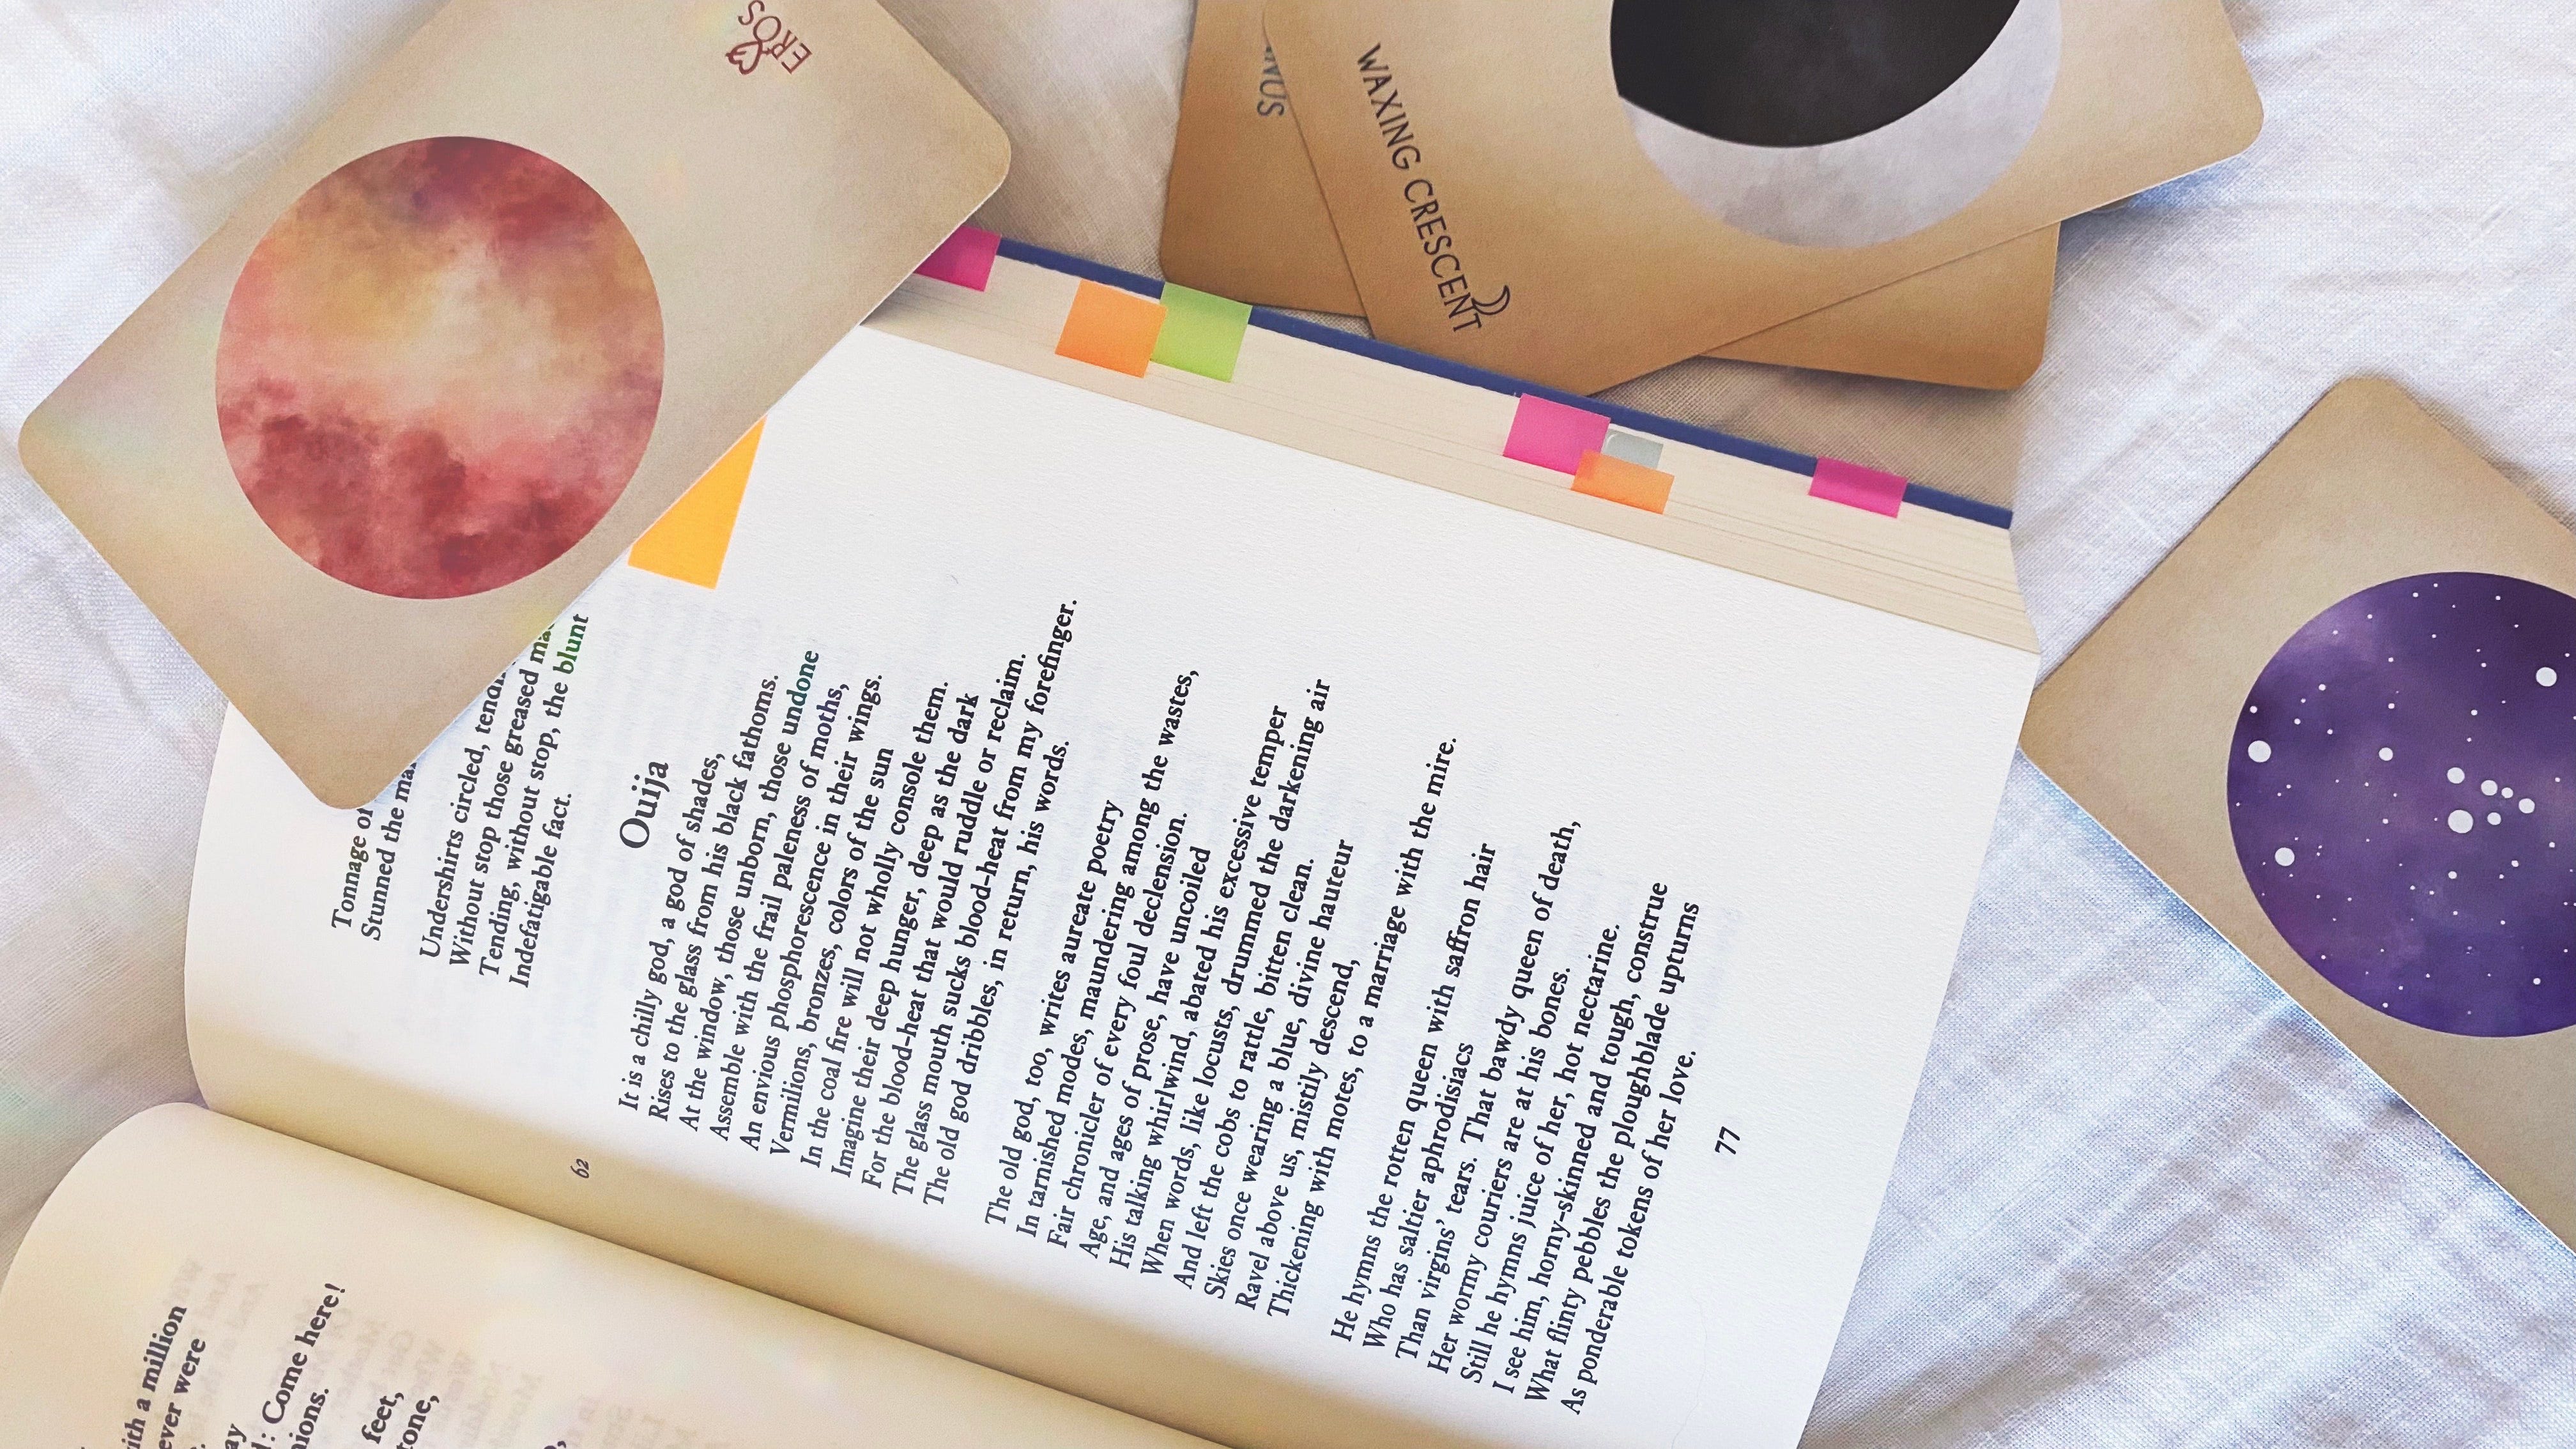 EROS
WAXING CRESCENT
Tonnage of
Stunned the
Undershirts circled,
Without stop those greased
Tending, without stop, the blunt
Indefatigable fact.
62
Ouija
It is a chilly god, a god of shades,
Rises to the glass from his black fathoms.
At the window, those unborn, those undone
Assemble with the frail paleness of moths,
An envious phosphorescence in their wings.
Vermilions, bronzes, colors of the sun
In the coal fire will not wholly console them.
Imagine their deep hunger, deep as the dark
For the blood-heat that would ruddle or reclaim.
The glass mouth sucks blood-heat from my forefinger.
The old god dribbles, in return, his words.
The old god, too, writes aureate poetry
In tarnished modes, maundering among the wastes,
Fair chronicler of every foul declension.
Age, and ages of prose, have uncoiled
His talking whirlwind, abated his excessive temper
When words, like locusts, drummed the darkening air
And left the cobs to rattle, bitten clean.
Skies once wearing a blue, divine hauteur
Ravel above us, mistily descend,
Thickening with motes, to a marriage with the mire.
He hymns the rotten queen with saffron hair
Who has saltier aphrodisiacs
Than virgins' tears. That bawdy queen of death,
Her wormy couriers are at his bones.
Still he hymns juice of her, hot nectarine.
I see him, horny-skinned and tough, construe
What flinty pebbles the ploughblade upturns
As ponderable tokens of her love.
77
a million
were
: Come here!
feet,